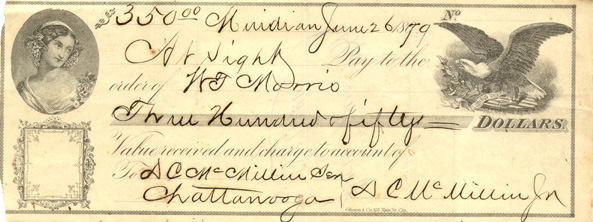 $350.00 Meridian June 26 1879 No
At Sight Pay to the
order of W T Morris
Three Hundred & fifty DOLLARS.
Value received and charge to account of
To D C McMillin Sen
Chattanooga D C McMillin Jr